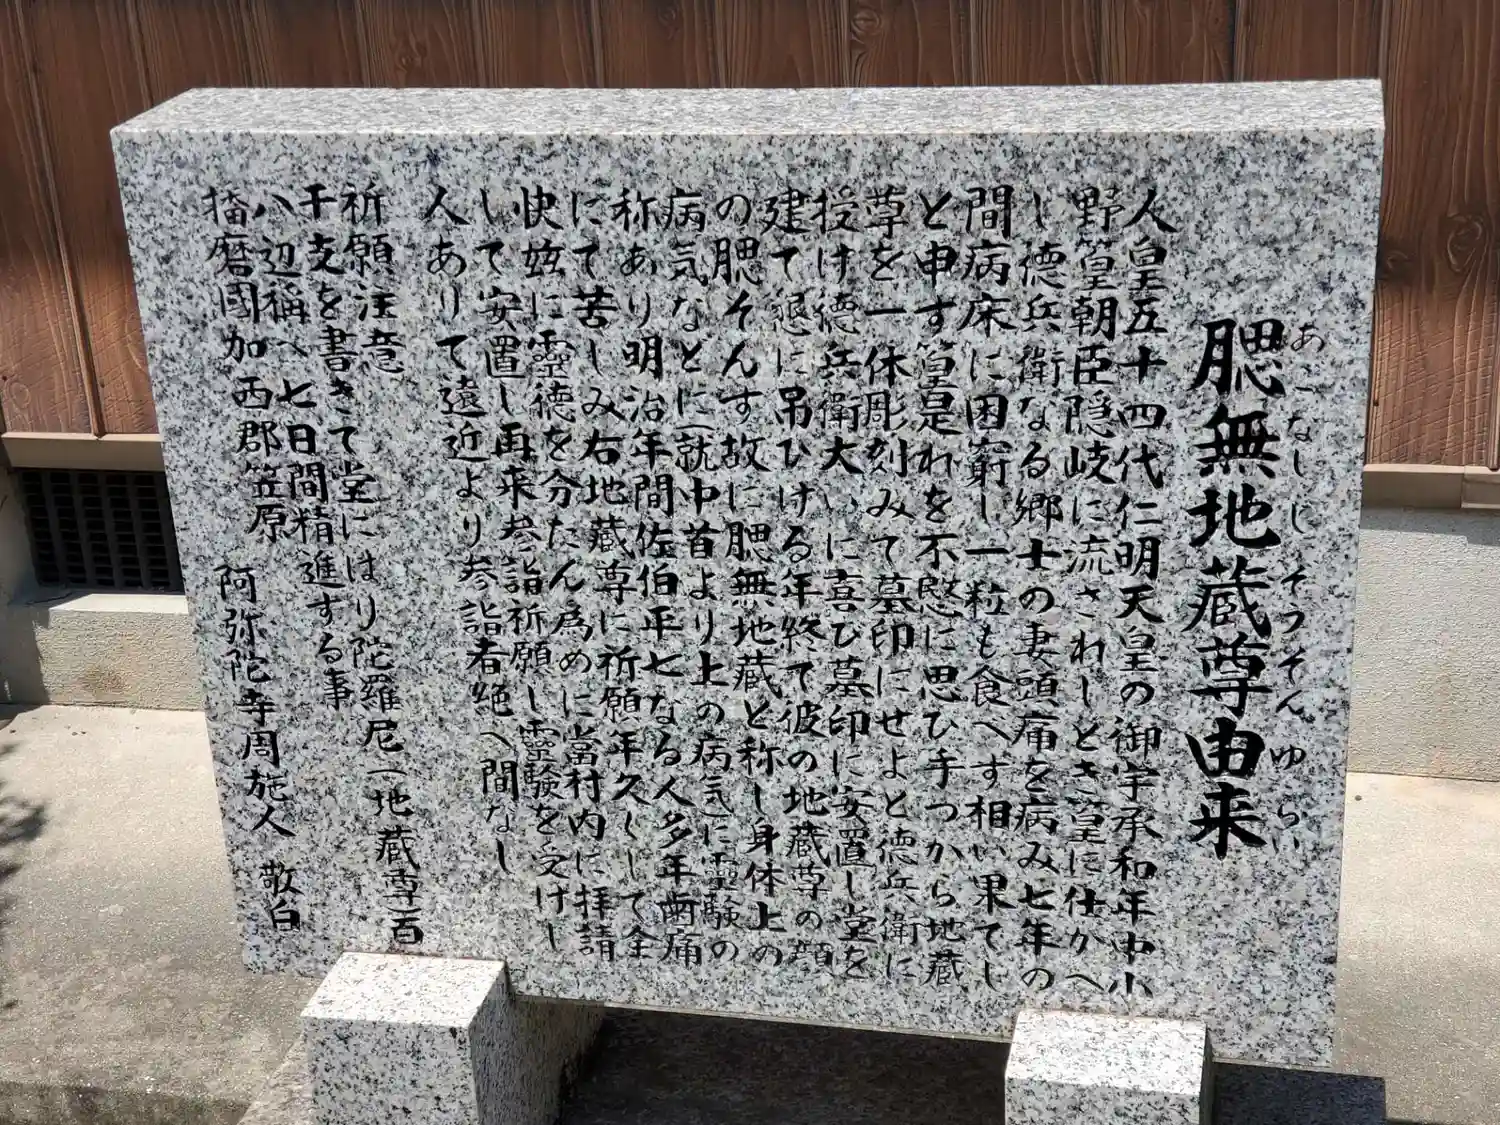 腮無地蔵尊由来
あごなしじぞうそんゆらい
人皇五十四代仁明天皇の御宇承和年中小
野篁朝臣隠岐に流されしとき篁に仕かへ
し德兵衛なる郷士の妻頭痛を病み七年の
間病床に困窮し一粒も食べす相い果てし
と申す篁是れを不慰に思ひ手つから地蔵
尊を一体彫刻みて墓印にせよと德兵衛に
授け德兵衛大いに喜ひ墓印に安置し堂を
建て懇に吊ひける年終て彼の地蔵尊の顔
の腮そんす故に腮無地蔵と称し身体上の
病気なとに就中首より上の病気に霊験の
称あり明治年間佐伯平七なる人多年歯痛
にて苦しみ右地蔵尊に祈願年久しくして全
快茲に靈德を分たん為めに當村内に拝請
して安置し再来参詣祈願し靈験を受けし
人ありて遠近より参詣者絶へ間なし
祈願注意
干支を書きて堂にはり陀羅尼(地蔵尊百
八辺称へ七日間精進する事
播磨國加西郡笠原 阿弥陀寺周施人 敬白